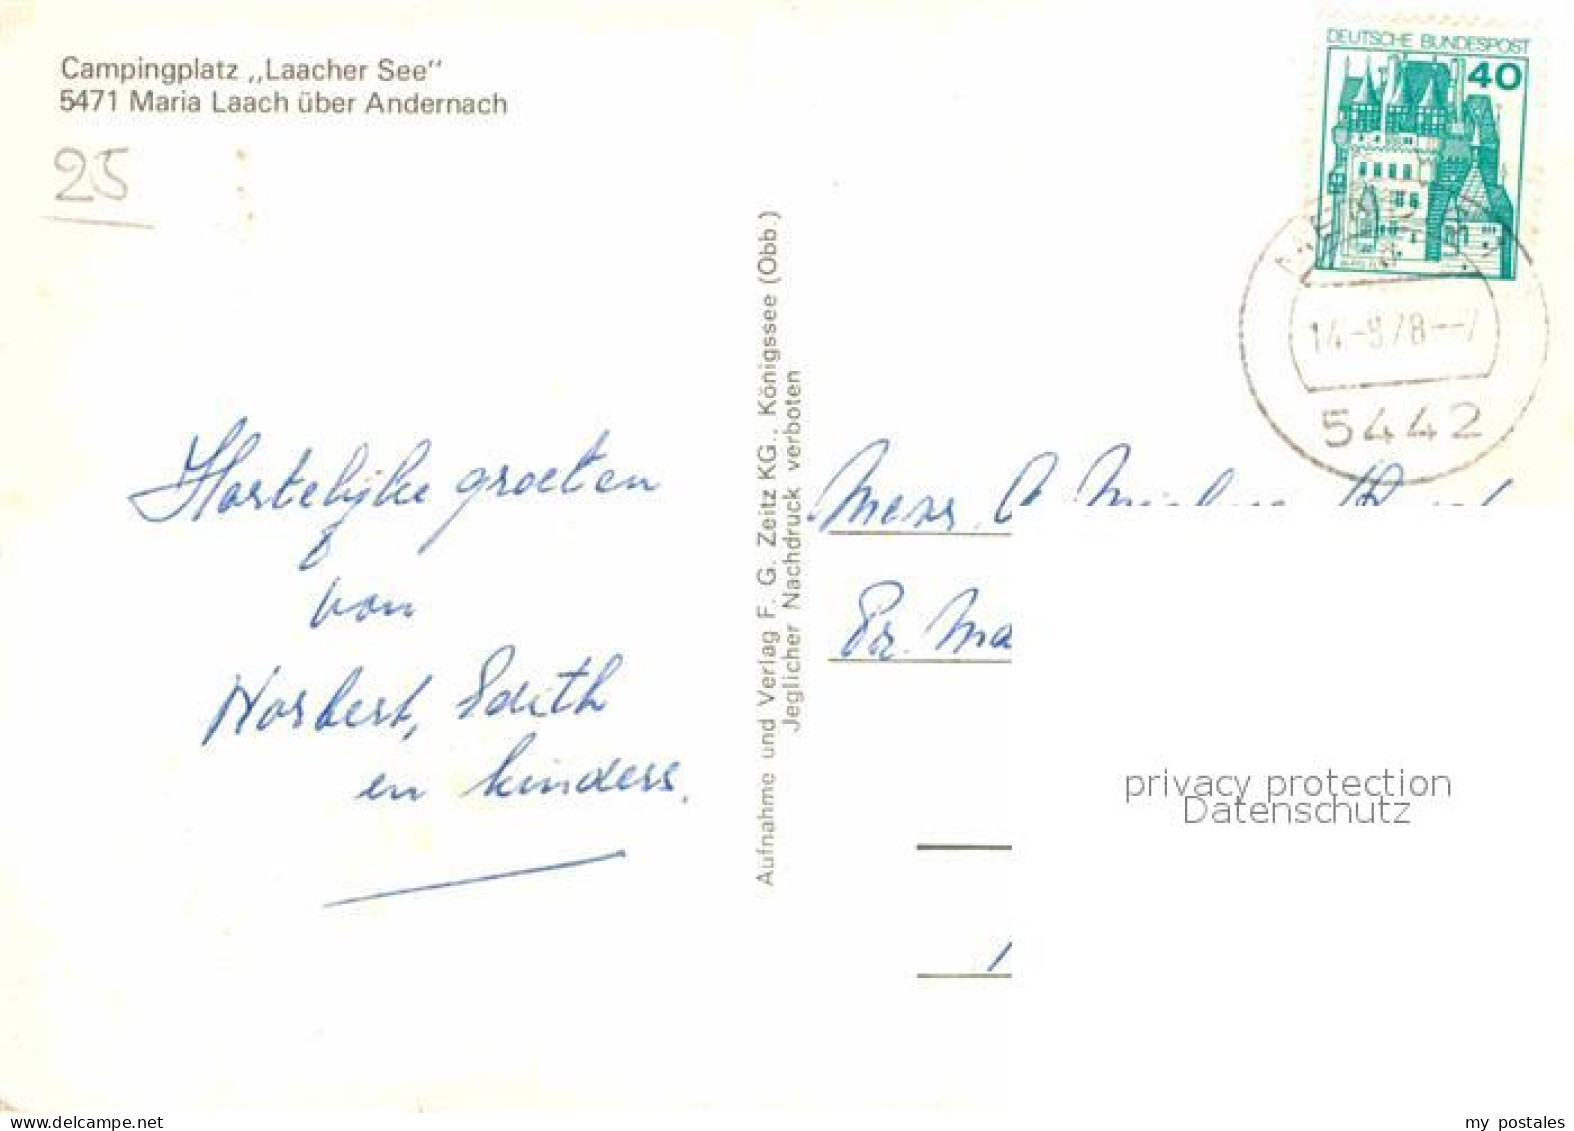 Campingplatz „Laacher See"
5471 Maria Laach über Andernach
25
DEUTSCHE BUNDESPOST
40
14.-9.78--7
5442
Hartelijke groeten
van
Norbert, Edith
en kinders.
Aufnahme und Verlag F. G. Zeitz KG., Königssee (Obb.)
Jeglicher Nachdruck verboten
privacy protection
Datenschutz
www.ansichtskartenversand.com
my postales